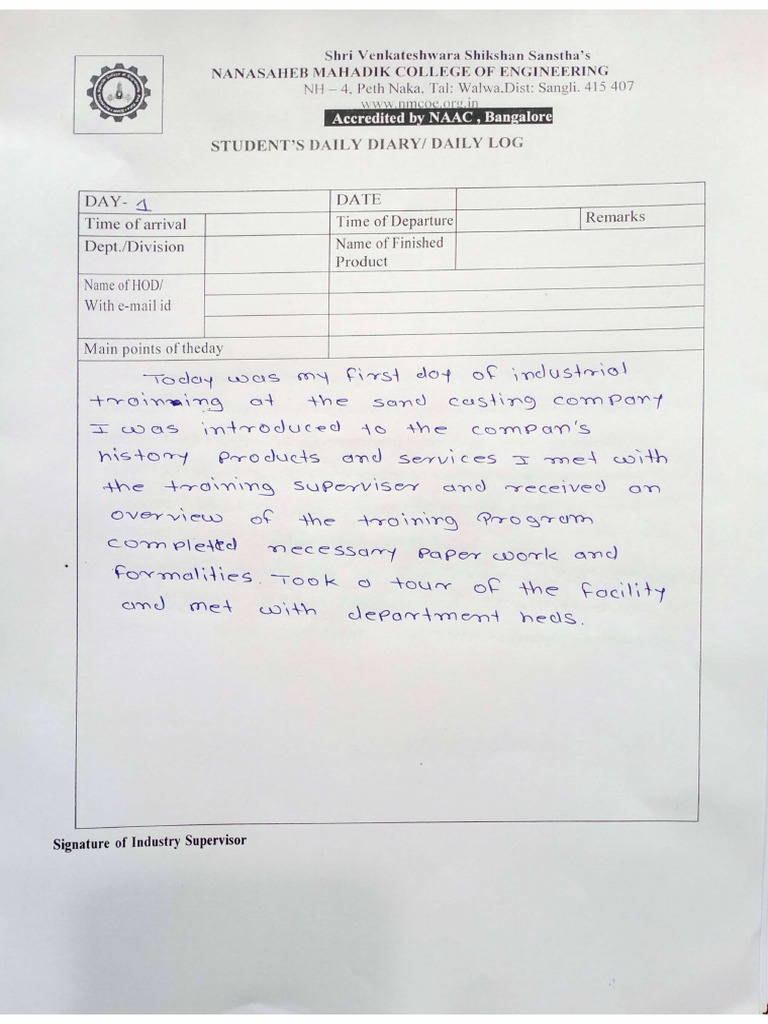 Shri Venkateshwara Shikshan Sanstha's
NANASAHEB MAHADIK COLLEGE OF ENGINEERING
NH – 4, Peth Naka, Tal: Walwa.Dist: Sangli. 415 407
www.nmcoe.org.in
Accredited by NAAC , Bangalore
STUDENT'S DAILY DIARY/ DAILY LOG
DAY- 1 DATE
Time of arrival Time of Departure Remarks
Dept./Division Name of Finished
Product
Name of HOD/
With e-mail id
Main points of theday
Today was my first day of industrial
trainning at the sand casting company
I was introduced to the compan's
history products and services I met with
the training superviser and received an
overview of the training program
completed necessary paper work and
formalities. Took a tour of the facility
and met with department heds.
Signature of Industry Supervisor